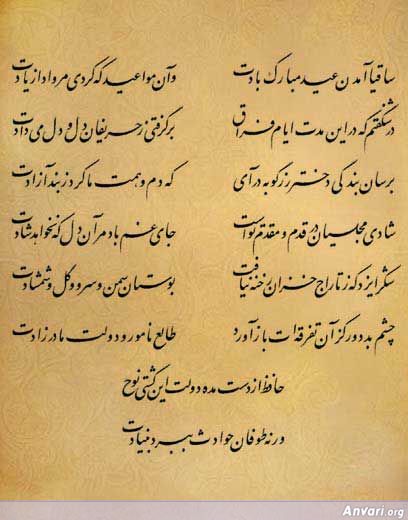 ساقیا آمدن عید مبارک بادت وآن مواعید که کردی مرواد از یادت
در شگفتم که در این مدت ایام فراق برگرفتی ز حریفان دل و دل می‌دادت
برسان بندگی دختر رز گو به درآی که دم و همت ما کرد ز بند آزادت
شادی مجلسیان در قدم و مقدم توست جای غم باد مر آن دل که نخواهد شادت
شکر ایزد که ز تاراج خزان رخنه نیافت بوستان سمن و سرو و گل و شمشادت
چشم بد دور کز آن تفرقه‌ات بازآورد طالع نامور و دولت مادرزادت
حافظ از دست مده دولت این کشتی نوح
ورنه طوفان حوادث ببرد بنیادت
Anvari.org